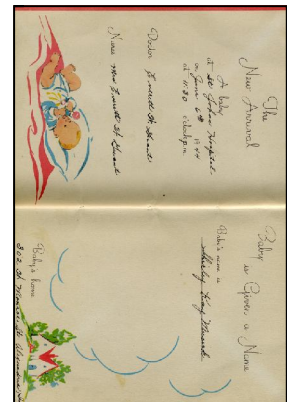 The
New Arrival
A baby
at St John Hospital
on June 6th 1944
at 11:30 o'clock p.m.
Doctor Everett H
Nurse Mrs Everett H
Baby is Given a Name
Baby's name is
Shirley Kay
Baby's home
802 St